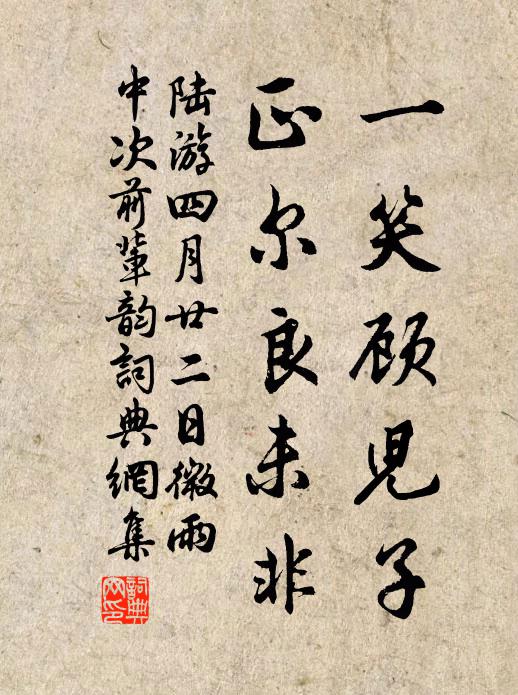 一笑顾児子
正尔良未非
陆游四月廿二日微雨
中次前辈韵詞典網集
詞典
网印